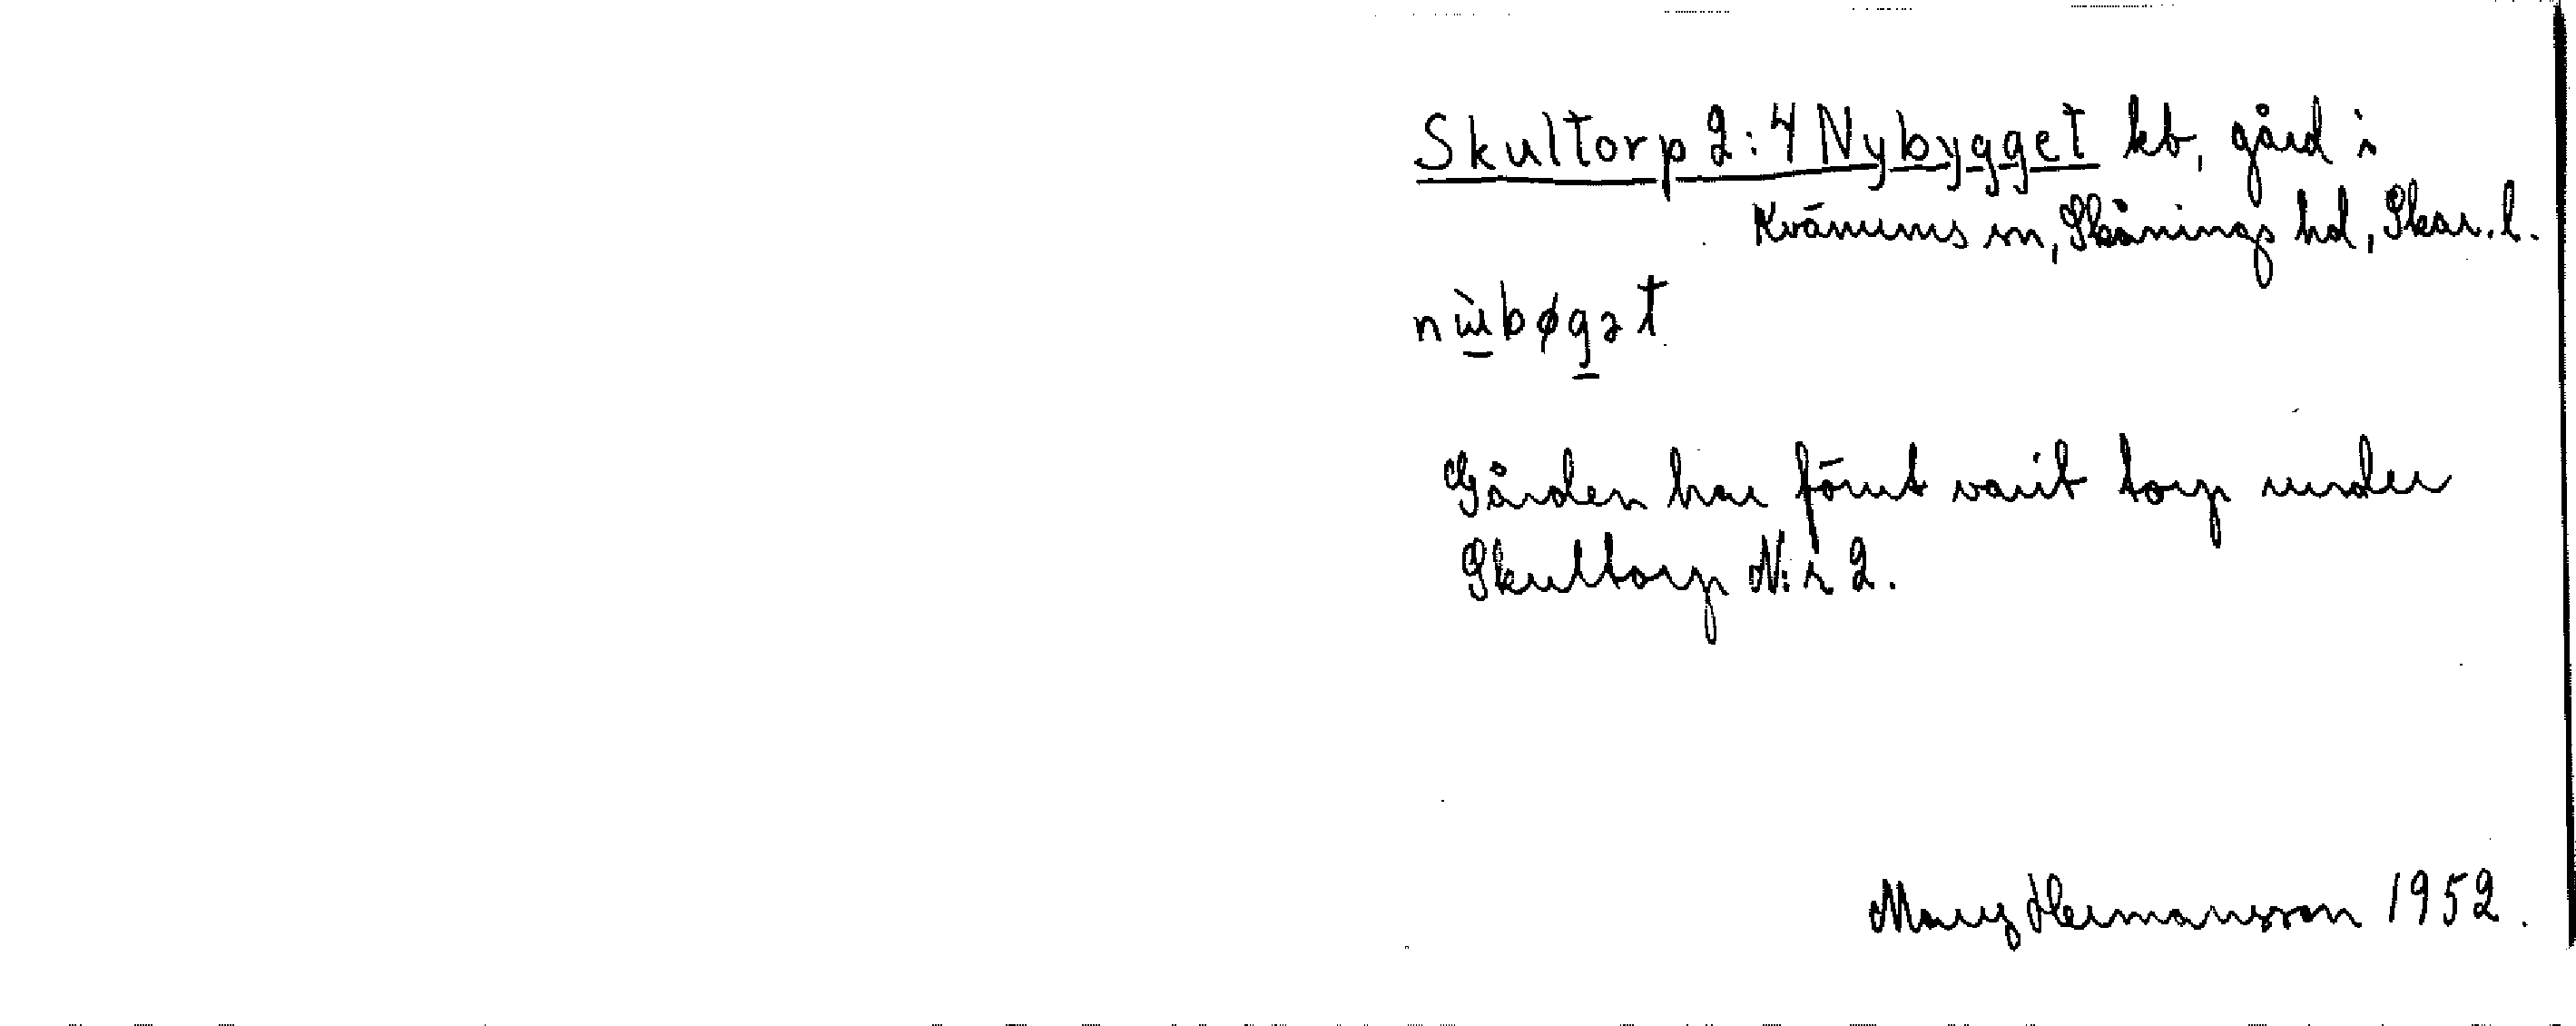 Skultorp 2:4 Nybygget kb, gård i
Kvänums sn, Skånings hd, Skar. l.
nẁbøgət
Gården har förut varit torp under
Skultorp N:r 2.
Mary Hermansson 1952.